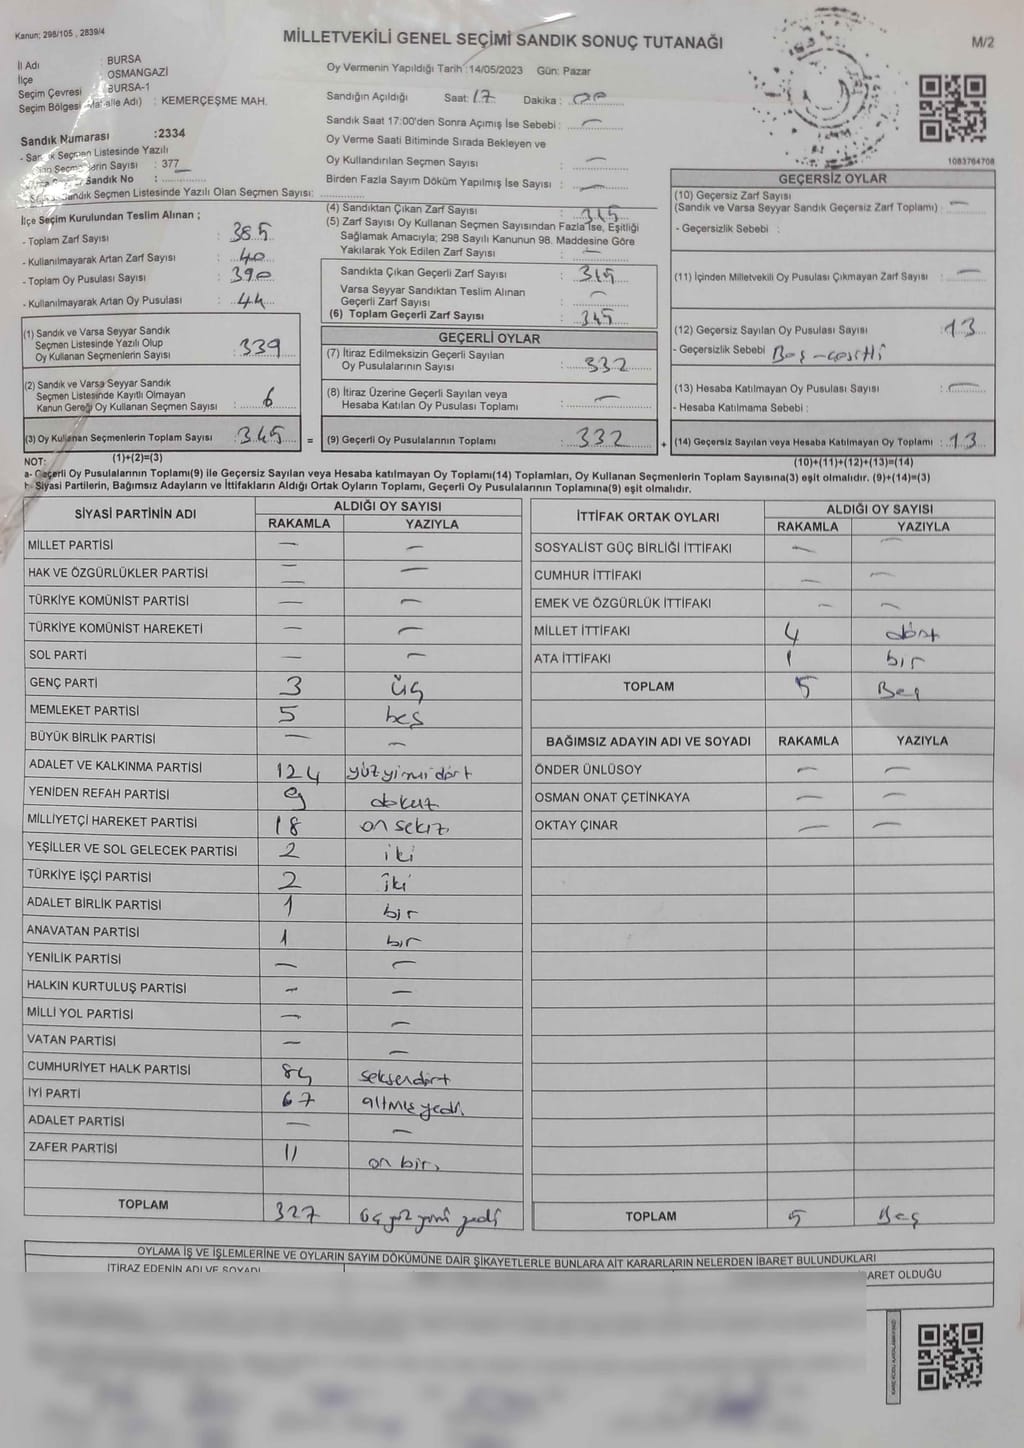 Kanun; 298/105 , 2839/4
MİLLETVEKİLİ GENEL SEÇİMİ SANDIK SONUÇ TUTANAĞI
M/2
İl Adı : BURSA
İlçe : OSMANGAZİ
Seçim Çevresi : BURSA-1
Seçim Bölgesi (Mahalle Adı) : KEMERÇEŞME MAH.
Oy Vermenin Yapıldığı Tarih :14/05/2023 Gün: Pazar
Sandığın Açıldığı Saat: 17 Dakika : 00
Sandık Saat 17:00'den Sonra Açımış İse Sebebi : —
Oy Verme Saati Bitiminde Sırada Bekleyen ve
Oy Kullandırılan Seçmen Sayısı : —
Birden Fazla Sayım Döküm Yapılmış İse Sayısı : —
1083764708
Sandık Numarası :2334
- Sandık Seçmen Listesinde Yazılı
Olan Seçmenlerin Sayısı : 377
Varsa Seyyar Sandık No :
Seyyar Sandık Seçmen Listesinde Yazılı Olan Seçmen Sayısı:
İlçe Seçim Kurulundan Teslim Alınan ;
- Toplam Zarf Sayısı : 385
- Kullanılmayarak Artan Zarf Sayısı : 40
- Toplam Oy Pusulası Sayısı : 390
- Kullanılmayarak Artan Oy Pusulası : 44
(1) Sandık ve Varsa Seyyar Sandık
Seçmen Listesinde Yazılı Olup
Oy Kullanan Seçmenlerin Sayısı : 339
(2) Sandık ve Varsa Seyyar Sandık
Seçmen Listesinde Kayıtlı Olmayan
Kanun Gereği Oy Kullanan Seçmen Sayısı : 6
(3) Oy Kullanan Seçmenlerin Toplam Sayısı : 345 =
(4) Sandıktan Çıkan Zarf Sayısı : 345
(5) Zarf Sayısı Oy Kullanan Seçmen Sayısından Fazla İse, Eşitliği
Sağlamak Amacıyla; 298 Sayılı Kanunun 98. Maddesine Göre
Yakılarak Yok Edilen Zarf Sayısı : —
Sandıkta Çıkan Geçerli Zarf Sayısı : 345
Varsa Seyyar Sandıktan Teslim Alınan
Geçerli Zarf Sayısı : —
(6) Toplam Geçerli Zarf Sayısı : 345
GEÇERLİ OYLAR
(7) İtiraz Edilmeksizin Geçerli Sayılan
Oy Pusulalarının Sayısı : 332
(8) İtiraz Üzerine Geçerli Sayılan veya
Hesaba Katılan Oy Pusulası Toplamı : —
(9) Geçerli Oy Pusulalarının Toplamı : 332 +
GEÇERSİZ OYLAR
(10) Geçersiz Zarf Sayısı
(Sandık ve Varsa Seyyar Sandık Geçersiz Zarf Toplamı) : —
- Geçersizlik Sebebi :
(11) İçinden Milletvekili Oy Pusulası Çıkmayan Zarf Sayısı : —
(12) Geçersiz Sayılan Oy Pusulası Sayısı : 13
- Geçersizlik Sebebi :
(13) Hesaba Katılmayan Oy Pusulası Sayısı : —
- Hesaba Katılmama Sebebi :
(14) Geçersiz Sayılan veya Hesaba Katılmayan Oy Toplamı : 13
NOT: (1)+(2)=(3)
(10)+(11)+(12)+(13)=(14)
a- Geçerli Oy Pusulalarının Toplamı(9) ile Geçersiz Sayılan veya Hesaba katılmayan Oy Toplamı(14) Toplamları, Oy Kullanan Seçmenlerin Toplam Sayısına(3) eşit olmalıdır. (9)+(14)=(3)
b- Siyasi Partilerin, Bağımsız Adayların ve İttifakların Aldığı Ortak Oyların Toplamı, Geçerli Oy Pusulalarının Toplamına(9) eşit olmalıdır.
SİYASİ PARTİNİN ADI ALDIĞI OY SAYISI
RAKAMLA YAZIYLA
MİLLET PARTİSİ — —
HAK VE ÖZGÜRLÜKLER PARTİSİ — —
TÜRKİYE KOMÜNİST PARTİSİ — —
TÜRKİYE KOMÜNİST HAREKETİ — —
SOL PARTİ — —
GENÇ PARTİ 3 üç
MEMLEKET PARTİSİ 5 beş
BÜYÜK BİRLİK PARTİSİ — —
ADALET VE KALKINMA PARTİSİ 124 yüzyirmi dört
YENİDEN REFAH PARTİSİ 9 dokuz
MİLLİYETÇİ HAREKET PARTİSİ 18 on sekiz
YEŞİLLER VE SOL GELECEK PARTİSİ 2 iki
TÜRKİYE İŞÇİ PARTİSİ 2 iki
ADALET BİRLİK PARTİSİ 1 bir
ANAVATAN PARTİSİ 1 bir
YENİLİK PARTİSİ — —
HALKIN KURTULUŞ PARTİSİ — —
MİLLİ YOL PARTİSİ — —
VATAN PARTİSİ — —
CUMHURİYET HALK PARTİSİ 84 seksendört
İYİ PARTİ 67 altmış yedi
ADALET PARTİSİ — —
ZAFER PARTİSİ 11 on bir
TOPLAM 327 üç yüz yirmi yedi
İTTİFAK ORTAK OYLARI ALDIĞI OY SAYISI
RAKAMLA YAZIYLA
SOSYALİST GÜÇ BİRLİĞİ İTTİFAKI — —
CUMHUR İTTİFAKI — —
EMEK VE ÖZGÜRLÜK İTTİFAKI — —
MİLLET İTTİFAKI 4 dört
ATA İTTİFAKI 1 bir
TOPLAM 5 Beş
BAĞIMSIZ ADAYIN ADI VE SOYADI RAKAMLA YAZIYLA
ÖNDER ÜNLÜSOY — —
OSMAN ONAT ÇETİNKAYA — —
OKTAY ÇINAR — —
TOPLAM 5 Beş
OYLAMA İŞ VE İŞLEMLERİNE VE OYLARIN SAYIM DÖKÜMÜNE DAİR ŞİKAYETLERLE BUNLARA AİT KARARLARIN NELERDEN İBARET BULUNDUKLARI
İTİRAZ EDENİN ADI VE SOYADI
BARET OLDUĞU